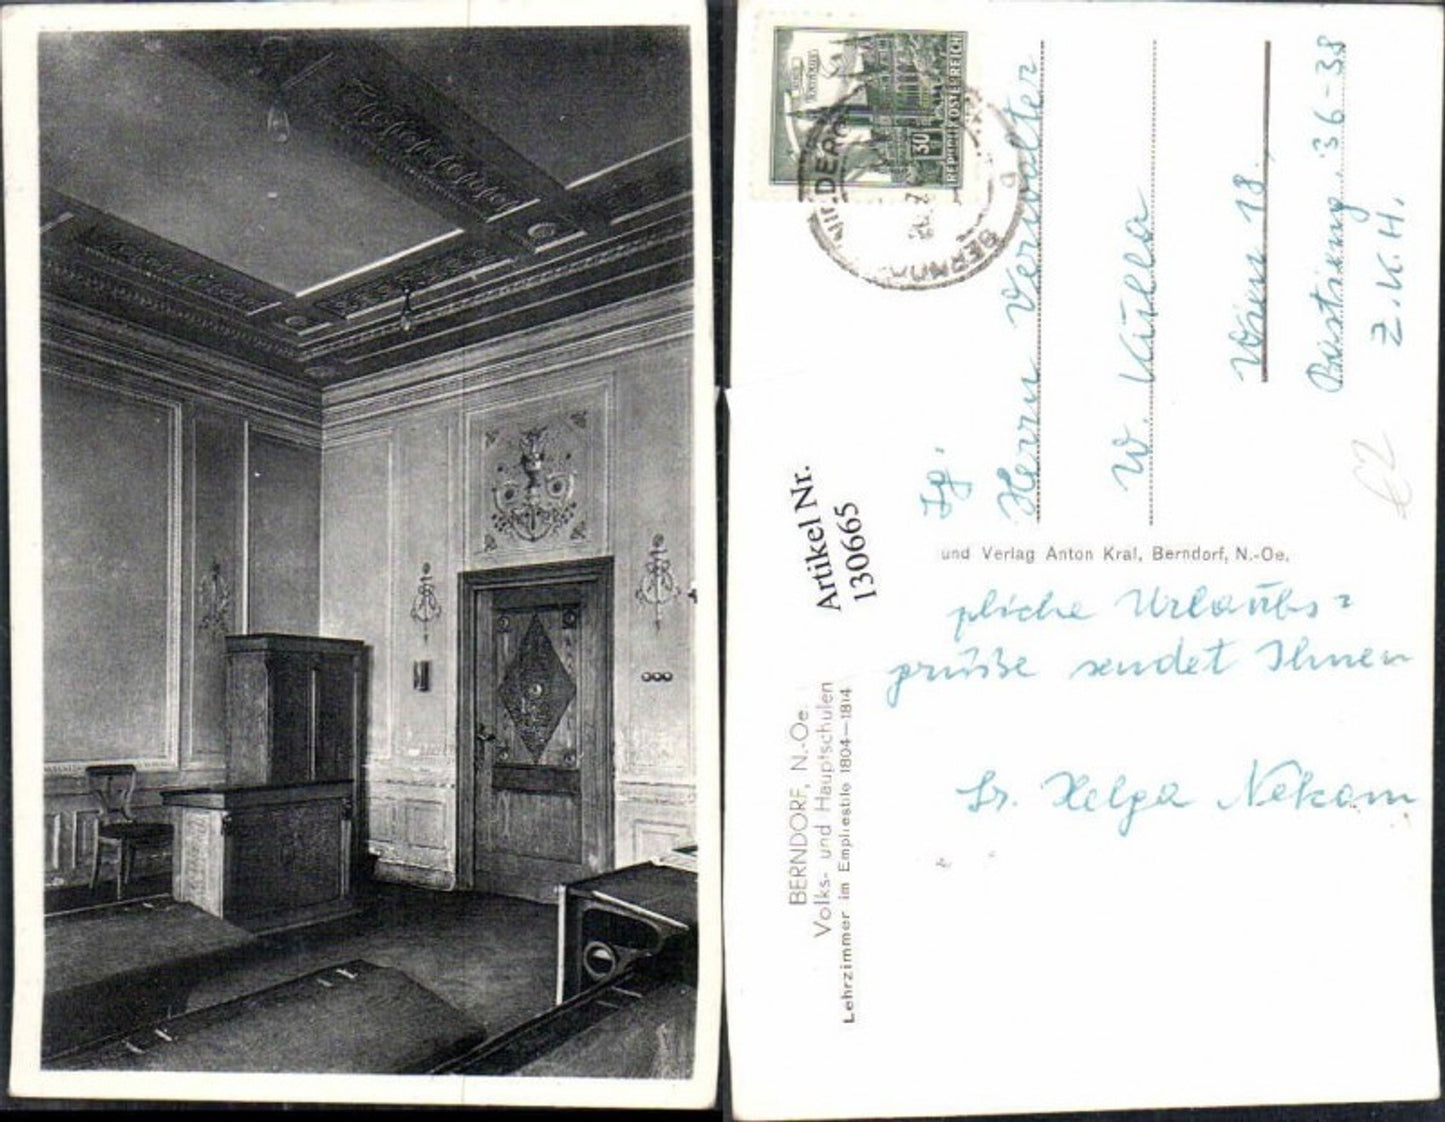 REPUBLIK ÖSTERREICH
30
BERNDORF
Herrn Verwalter
W. Kulla
Wien 18.
Bastieng. 36-38
Z.K.H.
Artikel Nr.
130665
und Verlag Anton Kral, Berndorf, N.-Oe.
BERNDORF, N.-Oe
Volks- und Hauptschulen
Lehrzimmer im Empirestile 1804—1814
Urlaubs=
grüße sendet Ihnen
Sr. Helga Nekam